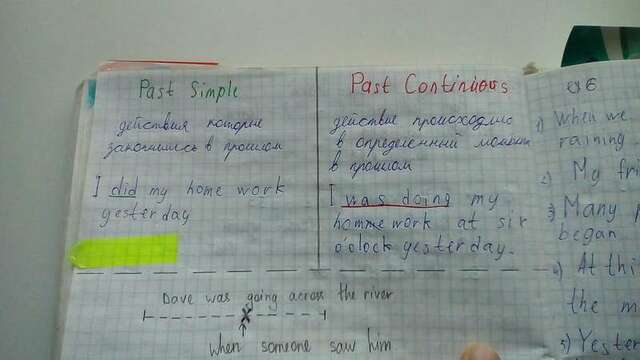 Past Simple
действия которые
закончились в прошлом
I did my home work
yesterday
Past Continuous
действие происходило
в определенный момент
в прошлом
I was doing my
homme work at sir
o'olock yesterday.
Dave was going across the river
when someone saw him
ex 6
1) When we
raining.
2) My fri
3) Many
began
4) At thi
the m
5) Yester